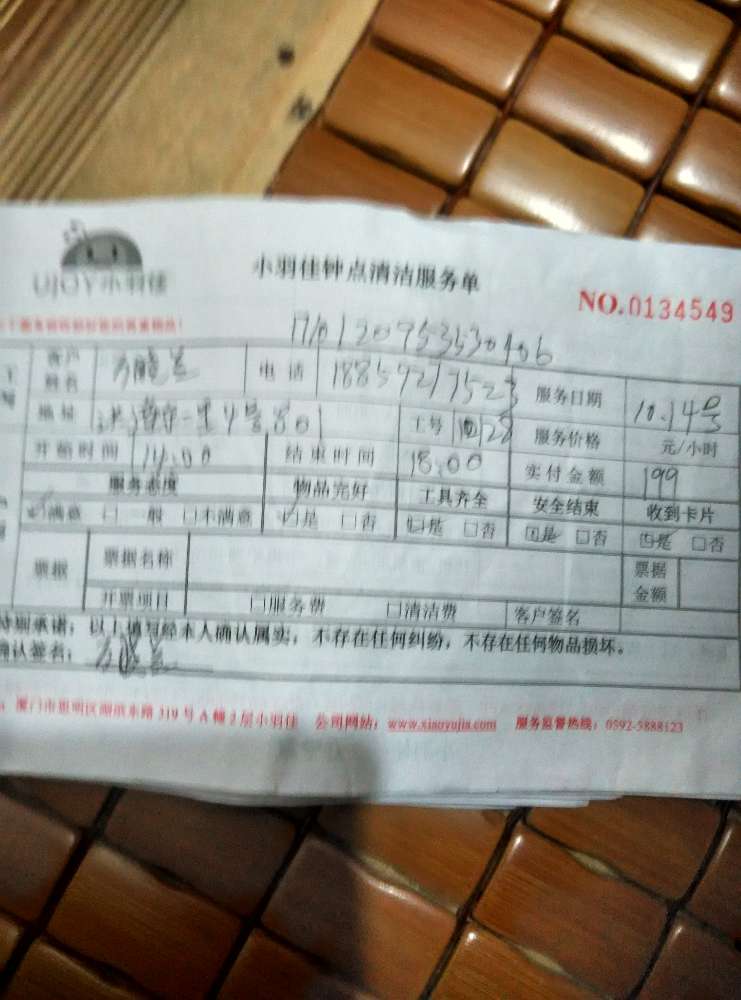 UJOY小羽佳
小羽佳钟点清洁服务单
NO.0134549
客户姓名 方晓兰 电话 18859217523 服务日期 10.14号
地址 一里4号801 工号 服务价格 元/小时
开始时间 14:00 结束时间 18:00 实付金额 199
服务态度 物品完好 工具齐全 安全结束 收到卡片
☑满意 □一般 □不满意 ☑是 □否 ☑是 □否 ☑是 □否 ☑是 □否
票据 票据名称 票据金额
开票项目 □服务费 □清洁费 客户签名
特别承诺：以上填写经本人确认属实，不存在任何纠纷，不存在任何物品损坏。
确认签名：方晓兰
厦门市思明区湖滨东路319号A幢2层小羽佳 公司网站：www.xiaoyujia.com 服务监督热线：0592-5888123